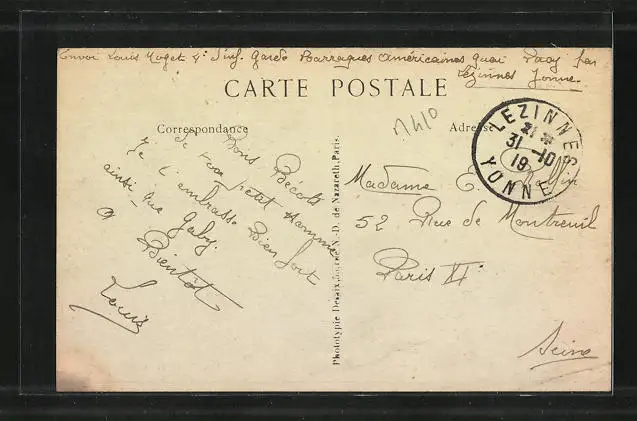 Envoi Louis Noget 4e d'inf. Garde Barraques Américaines quai Pacy par
Lézinnes Yonne.
CARTE POSTALE
Correspondance
Adresse
LEZINNES
31-10
19
YONNE
Bons Bécots
de ton petit homme
Je t'embrasse Bien fort
ainsi que Gaby.
a Bientôt
Louis
Phototypie Desaix, 15 rue N.-D. de Nazareth, Paris.
Madame E.
52 Rue de Montreuil
Paris XI
Seine